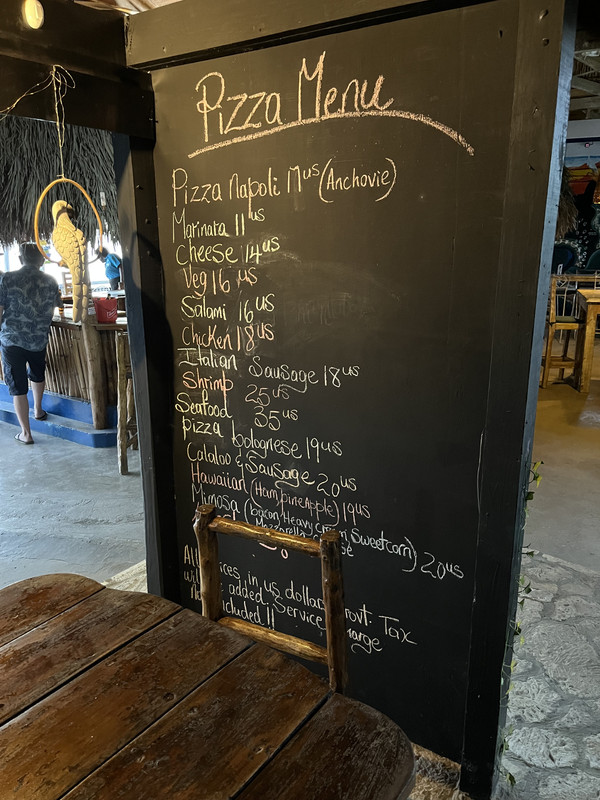 Pizza Menu
Pizza Napoli 17us (Anchovie)
Marinara 11us
Cheese 14us
Veg 16 us
Salami 16us
Chicken 18us
Italian Sausage 18us
Shrimp 25us
Seafood 35us
pizza bolognese 19us
Calaloo & Sausage 20us
Hawaiian (Ham, PineApple) 19us
Mimosa (bacon, Heavy cream, Sweetcorn) 20us
Mozzarella
in us dollar Govt. Tax
added Service